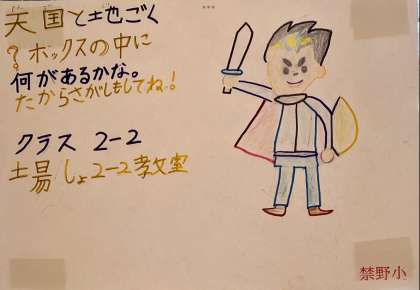 天国と地ごく
？ボックスの中に
何があるかな。
たからさがしもしてね！
クラス 2-2
土昜しょ2-2教室
禁野小